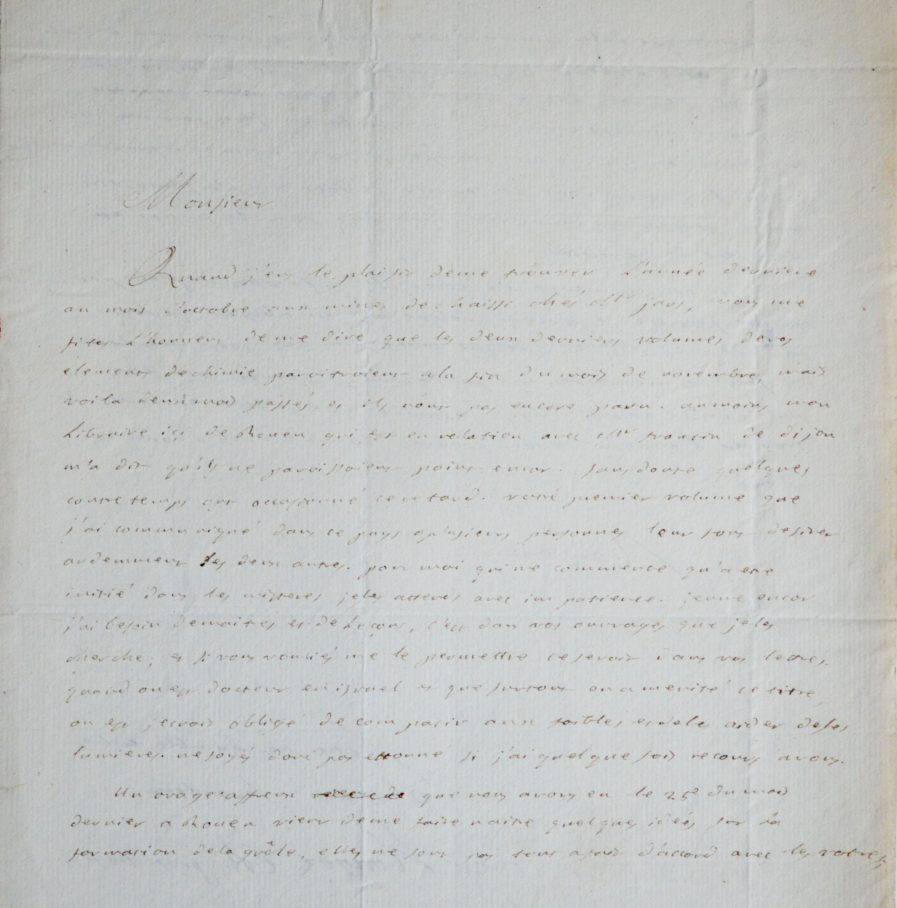 Monsieur
Quand j'eus le plaisir deme trouver l'année derniere
au mois d'octobre aux mines dechaissi chés Mr jars, vous me
fites l'honneur deme dire que les deux derniers volumes devos
elements dechimie paroitroient ala fin du mois de novembre, mais
voila deux mois passés et ils n'ont pas encore paru. aumoins mon
Libraire ici de Rouen qui est en relation avec Mr frantin de dijon
m'a dit qu'ils ne paroissoient point encor. sans doute quelques
contretemps ont occasionné ceretard. votre premier volume que
j'ai communiqué dans ce pays aplusieurs personnes leur font desirer
ardemment les deux autres. pour moi qui ne commence qu'a etre
initié dans les misteres jeles attends avec impatience. jeune encor
j'ai besoin demaitres et de Leçons, c'est dans vos ouvrages que jeles
cherche, et si vous vouliés me le permettre ceseroit dans vos lettres.
quand on est docteur en israel et que surtout on a merité ce titre,
on est jecrois obligé de compatir aux foibles et deles aider deses
lumieres. nesoyés donc pas ettonné si j'ai quelque fois recours avous.
Un orage affreux que nous avons eu le 25e du mois
dernier a Rouen vient deme faire naitre quelques idées sur la
formation dela grêle, elles ne sont pas tout afait d'accord avec les votres,